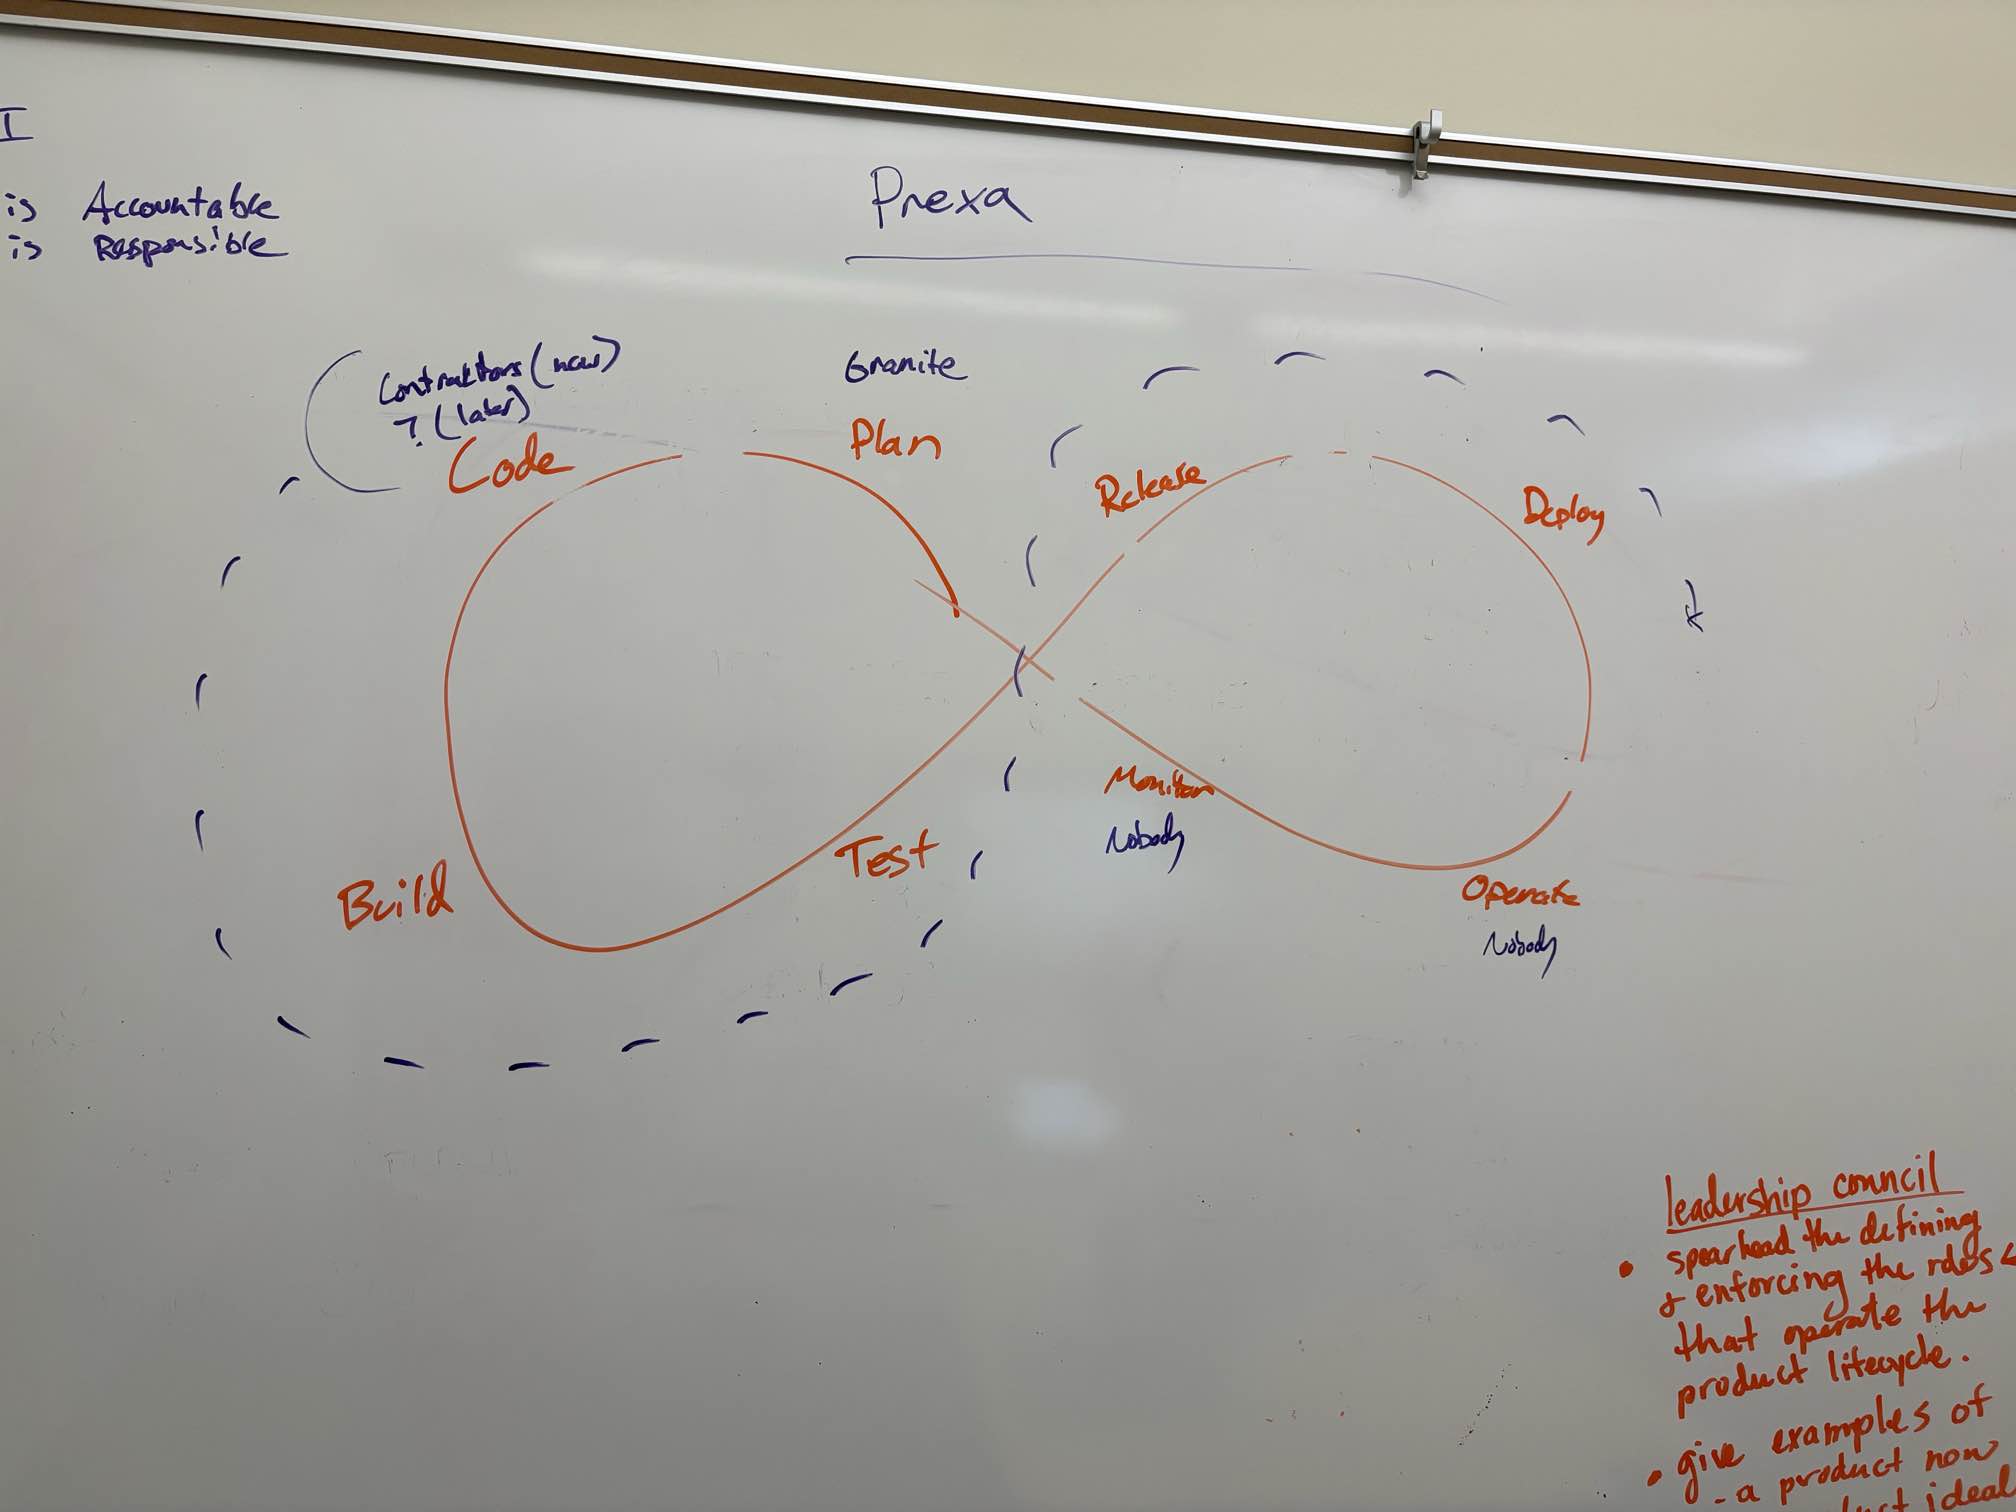 I
is Accountable
is Responsible
Prexa
Contraktors (now)
? (later)
Code
Granite
Plan
Release
Deploy
Monitor
Nobody
Test
Build
Operate
Nobody
leadership council
• spearhead the defining
& enforcing the roles
that operate the
product lifecycle.
• give examples of
- a product now
ideal